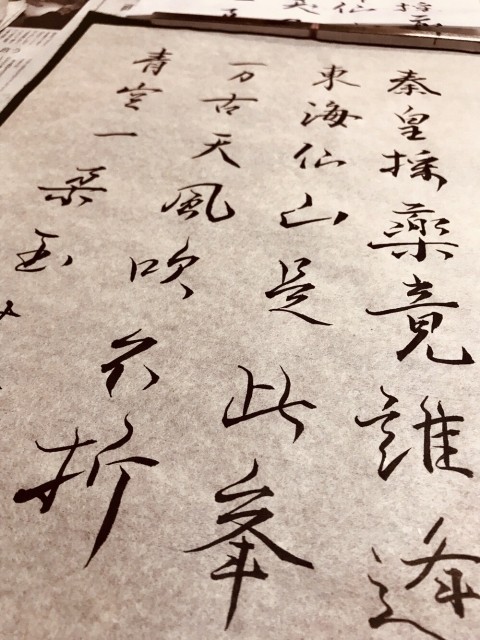 秦皇採薬竟誰逢
東海仙山是此峯
万古天風吹不折
青空一朶玉